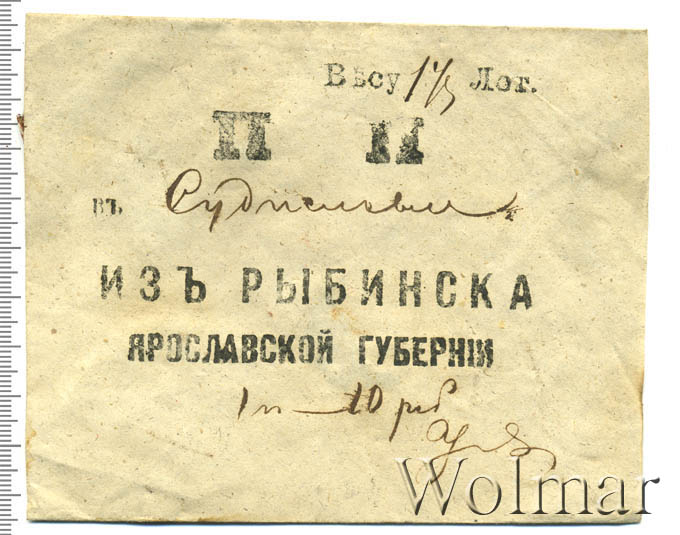 Вѣсу 1 1/3 Лот.
П К
въ Судиславль
ИЗЪ РЫБИНСКА
ЯРОСЛАВСКОЙ ГУБЕРНІИ
1 п — 10 рб
Wolmar